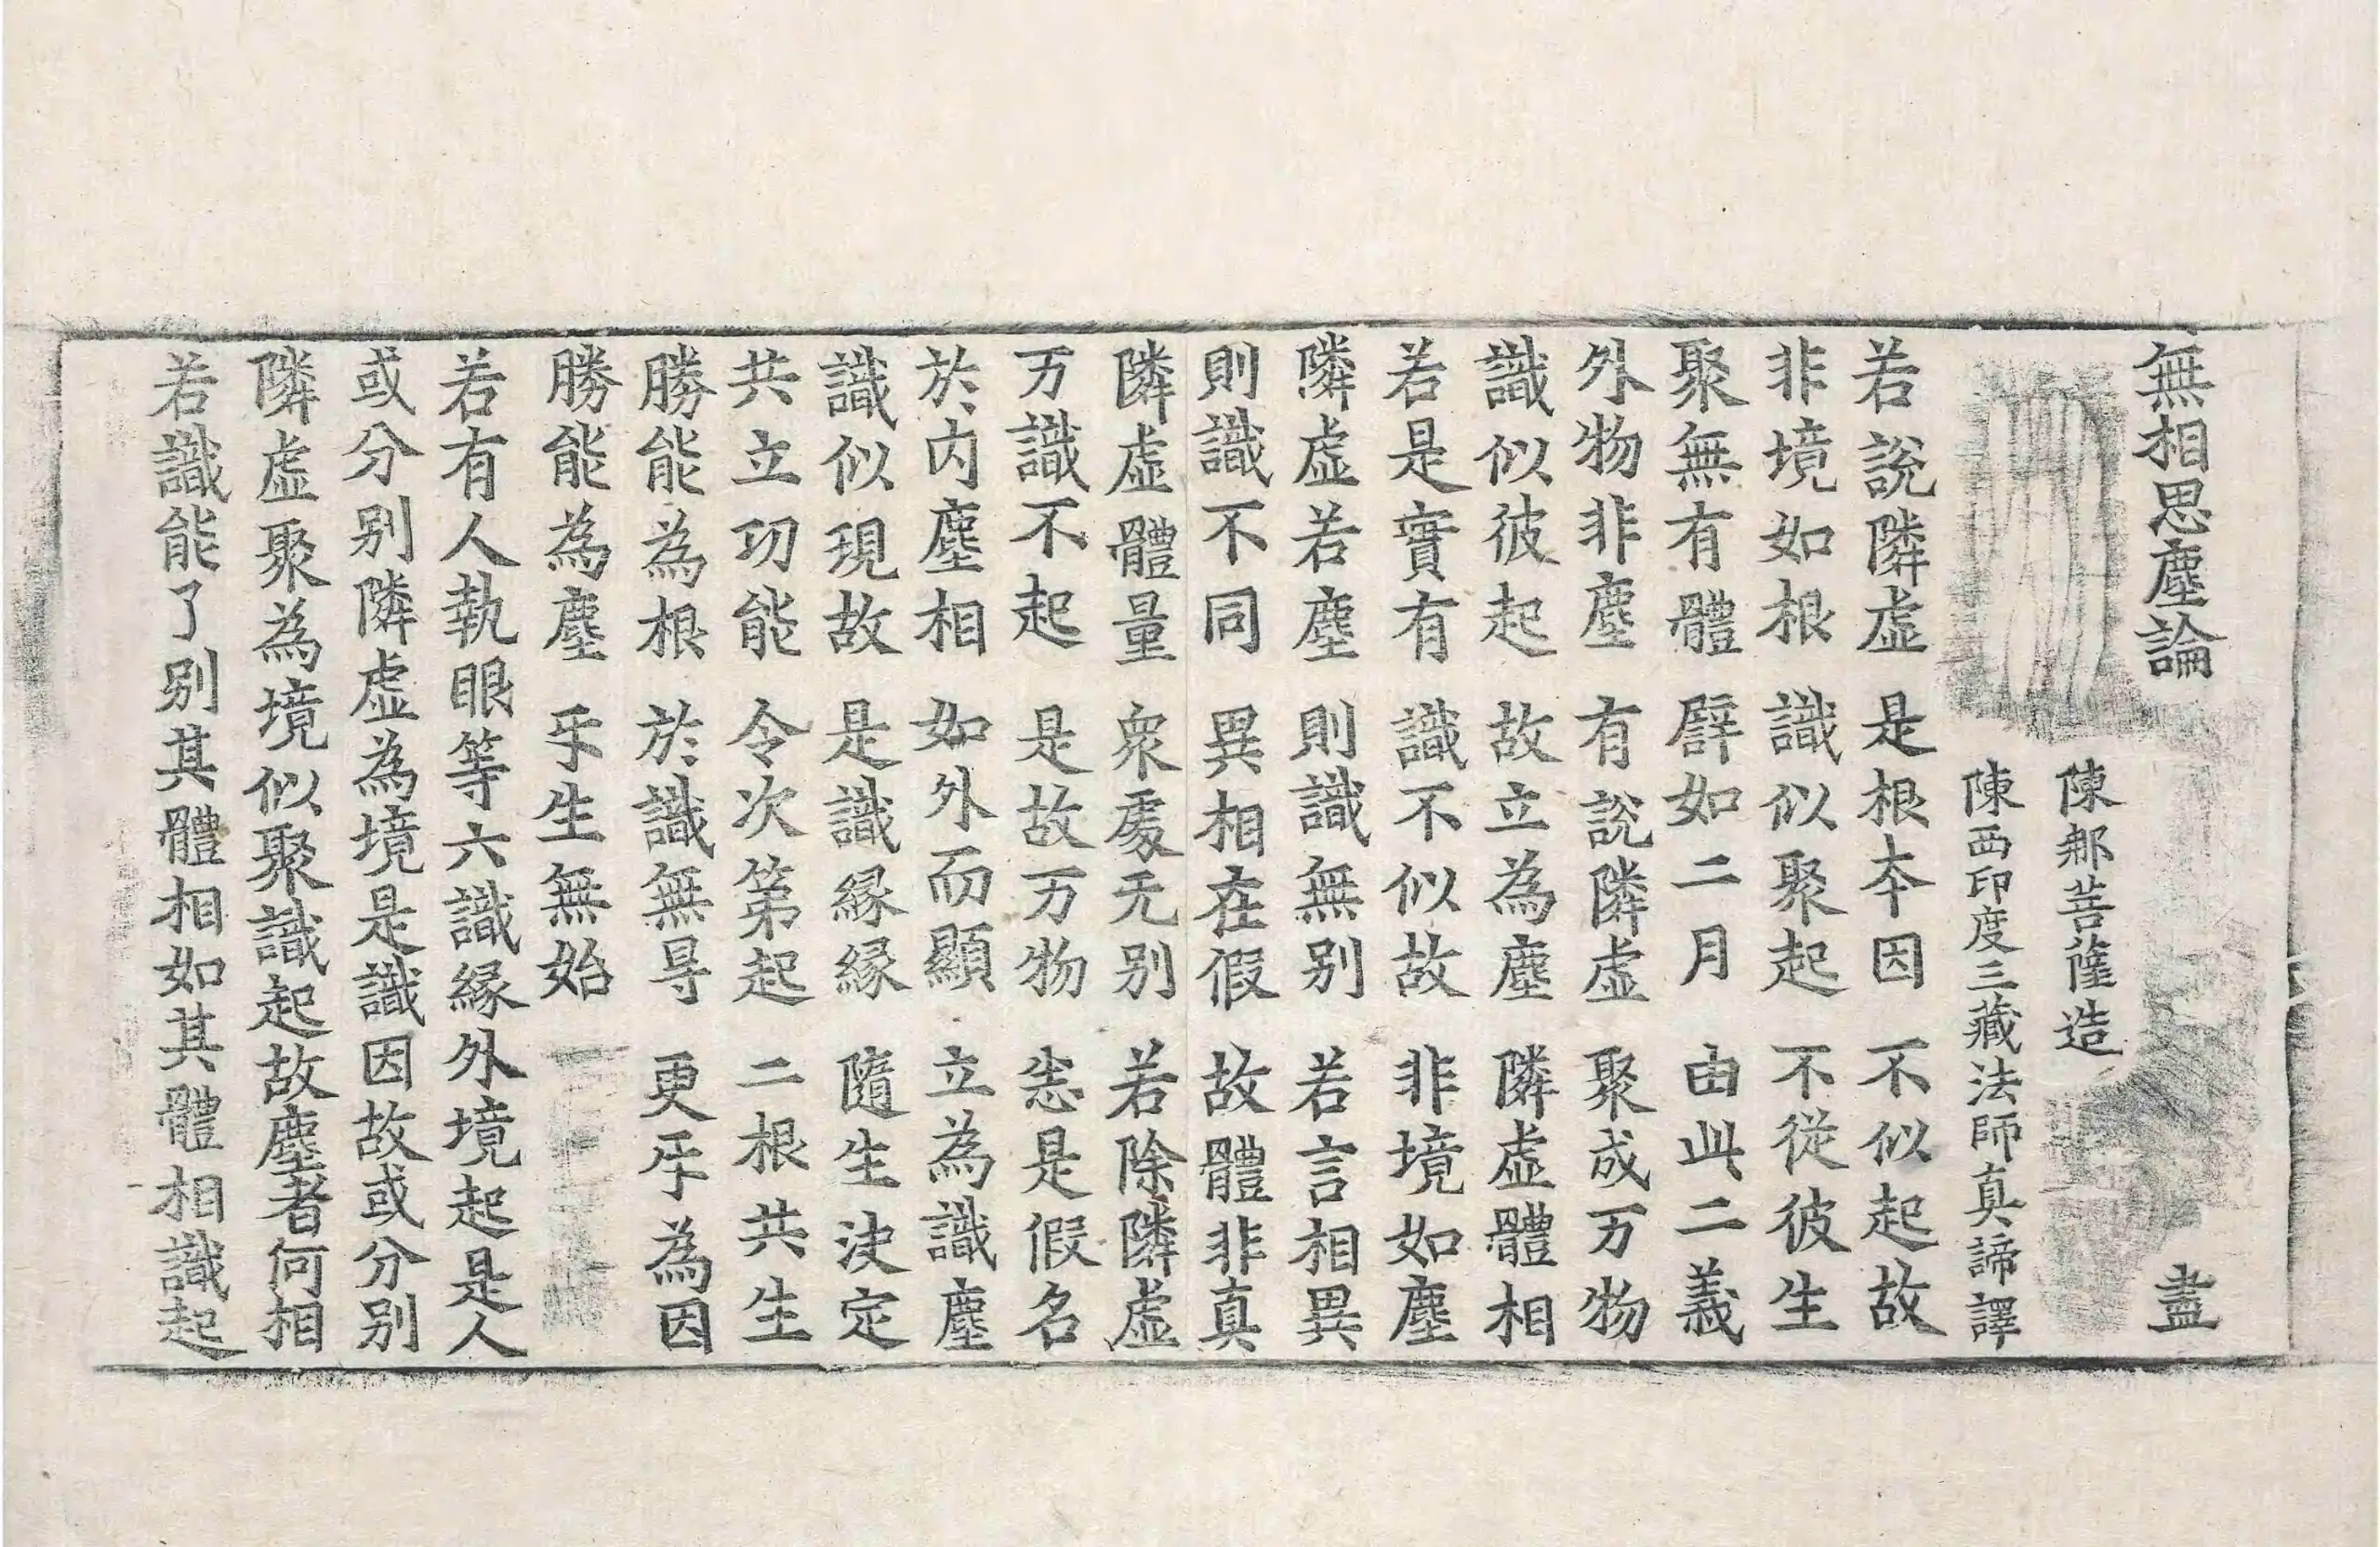 無相思塵論 盡
陳那菩薩造
陳西印度三藏法師真諦譯
若說隣虛 是根本因 不似起故
非境如根 識似聚起 不從彼生
聚無有體 譬如二月 由此二義
外物非塵 有說隣虛 聚成万物
識似彼起 故立為塵 隣虛體相
若是實有 識不似故 非境如塵
隣虛若塵 則識無別 若言相異
則識不同 異相在假 故體非真
隣虛體量 衆處无别 若除隣虛
万識不起 是故万物 恙是假名
於內塵相 如外而顯 立為識塵
識似現故 是識緣緣 隨生決定
共立功能 令次第起 二根共生
勝能為根 於識無㝵 更𤓰為因
勝能為塵 𤓰生無始
若有人執眼等六識緣外境起是人
或分別隣虛為境是識因故或分別
隣虛聚為境似聚識起故塵者何相
若識能了別其體相如其體相識起